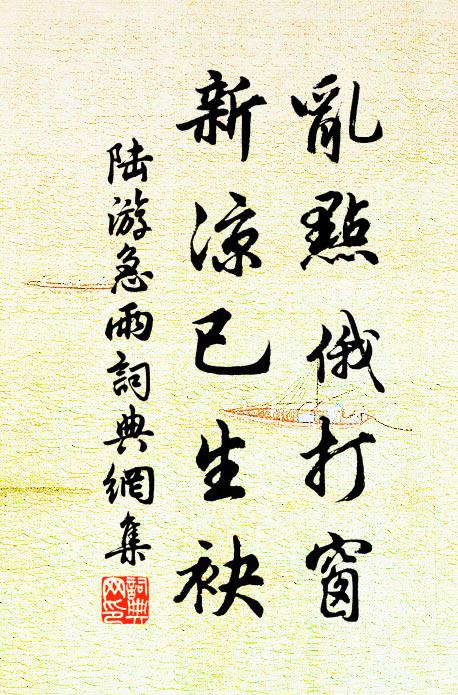 亂點俄打窗
新涼已生袂
陸游急雨詞典網集
詞典網印